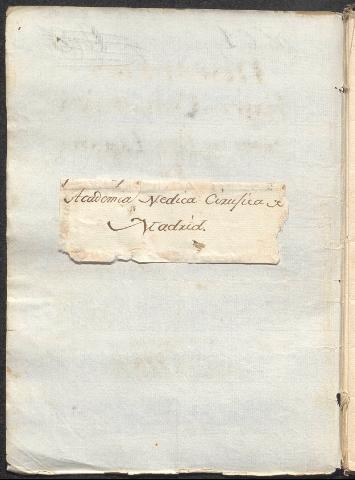 Academia Medica Cirusica de
Madrid.